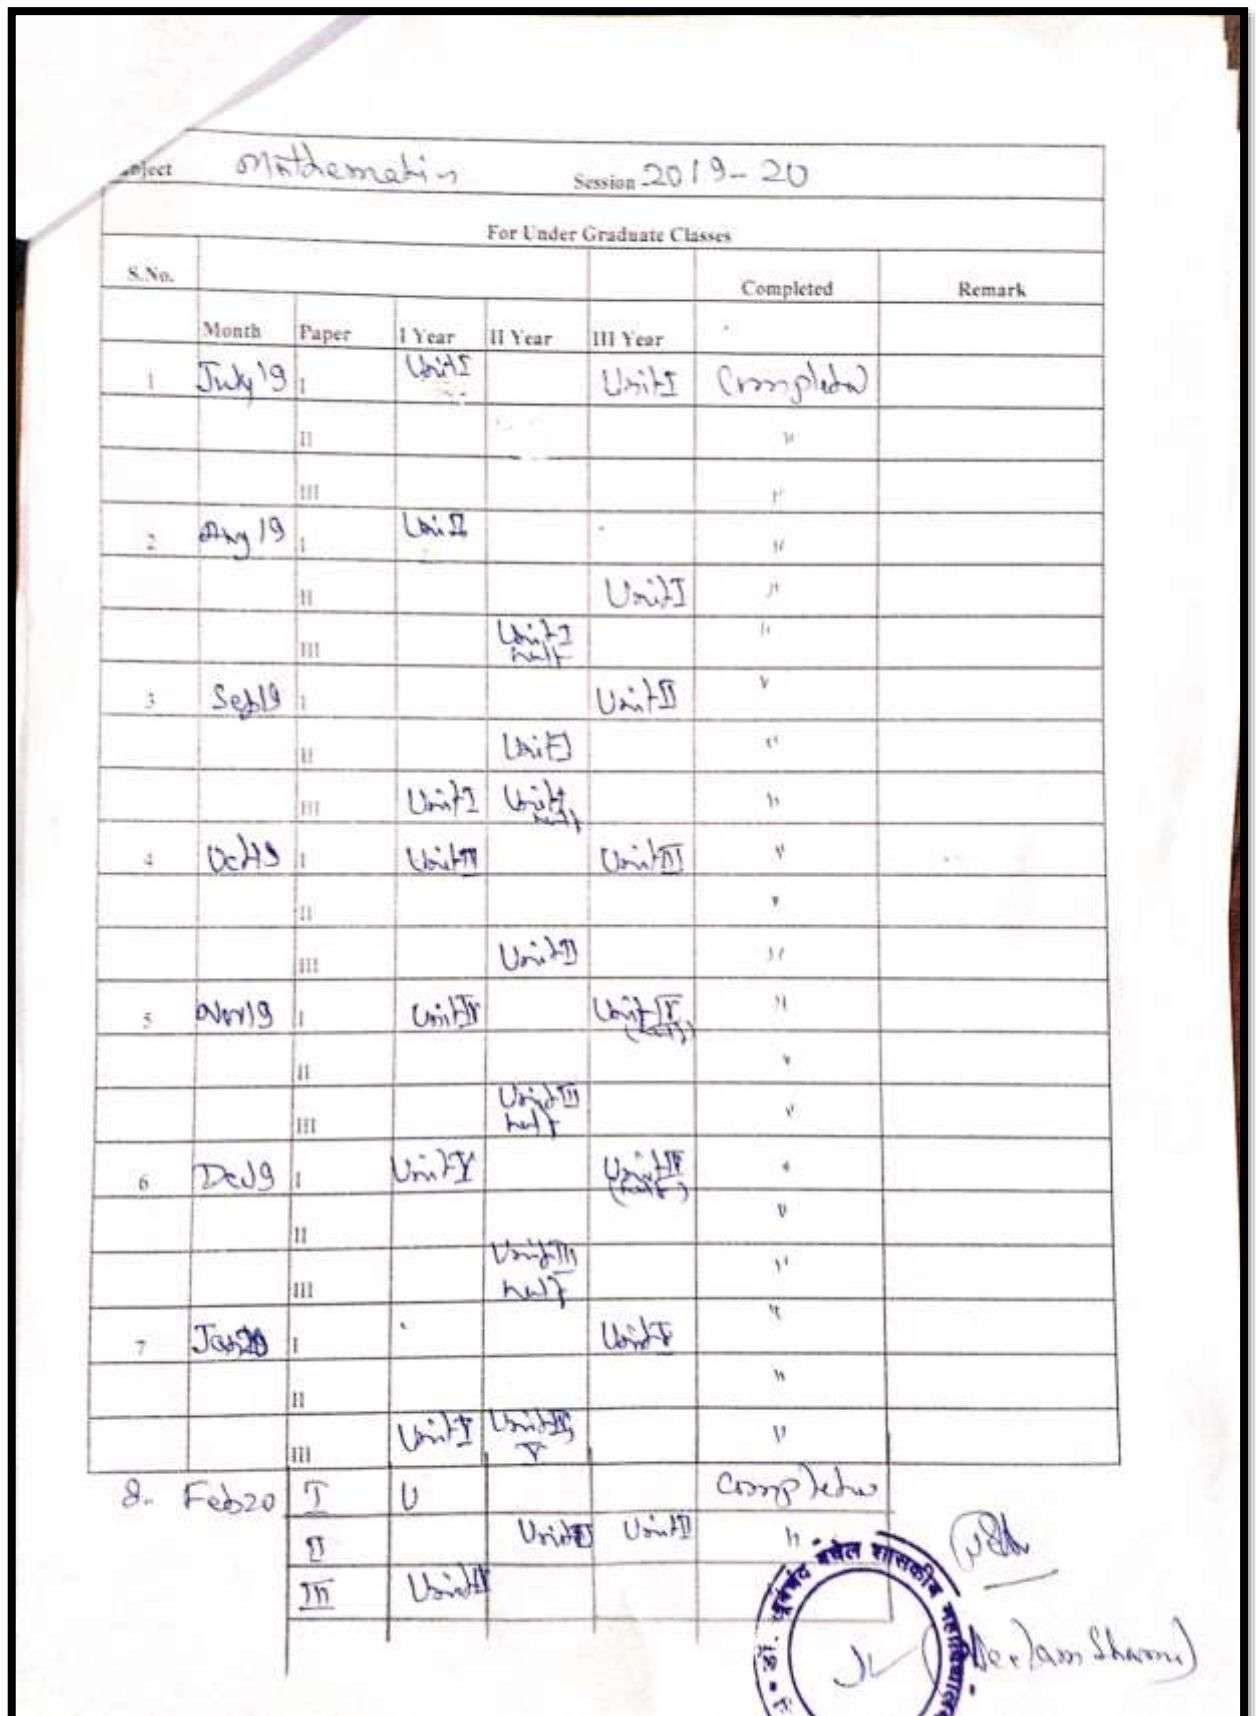 Subject Mathematics Session 2019-20
For Under Graduate Classes
S.No. Completed Remark
Month Paper I Year II Year III Year
1 July'19 I Unit I Unit I Completed
II "
III "
2 Aug 19 I Uni II "
II Unit I "
III Unit I half "
3 Sep19 I Unit II "
II Unit I "
III Unit I Unit I half "
4 Oct19 I Unit III Unit III "
II "
III Unit II "
5 Nov19 I Unit IV Unit IV (half) "
II "
III Unit III half "
6 Dec19 I Unit V Unit IV (half) "
II "
III Unit III half "
7 Jan20 I Unit V "
II "
III Unit IV, V "
8. Feb20 I U Completed
II Unit II Unit II "
III Unit II
डॉ. खूबचंद बघेल शासकीय महाविद्यालय
(Neelam Sharma)